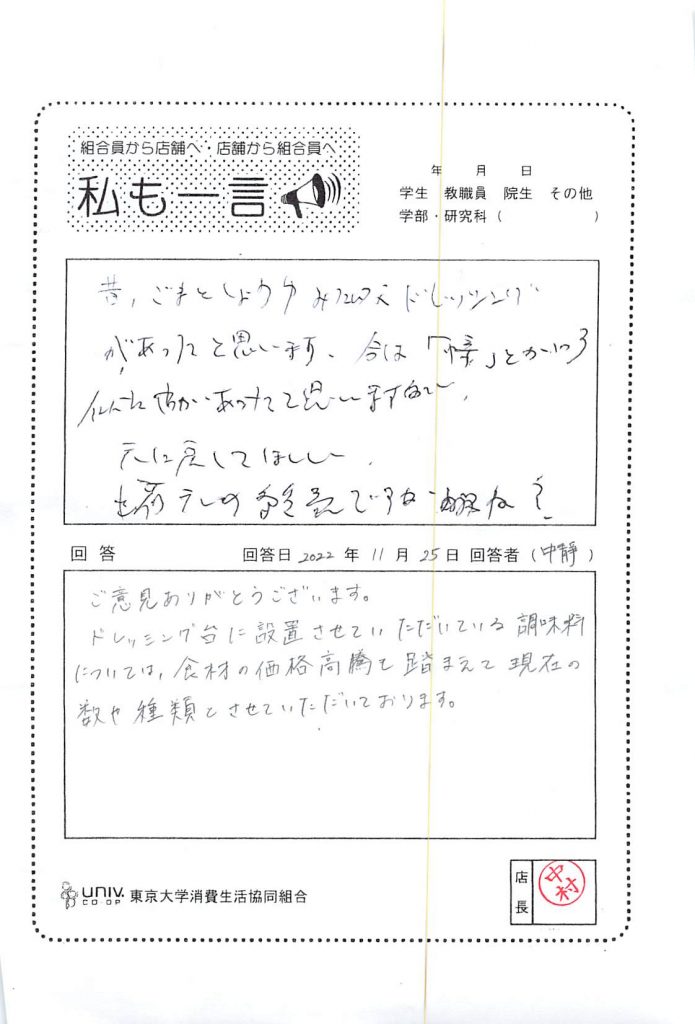 組合員から店舗へ・店舗から組合員へ
私も一言
年 月 日
学生 教職員 院生 その他
学部・研究科( )
昔、ごまとしょうゆ ドレッシング
があったと思います、今は「 」とかいう
似た があったと思います
元に戻してほしい
回答 回答日 2022 年 11 月 25 日 回答者(中静)
ご意見ありがとうございます。
ドレッシング台に設置させていただいている調味料
については、食材の価格高騰も踏まえて現在の
数や種類とさせていただいております。
UNIV. CO-OP 東京大学消費生活協同組合
店長
中村